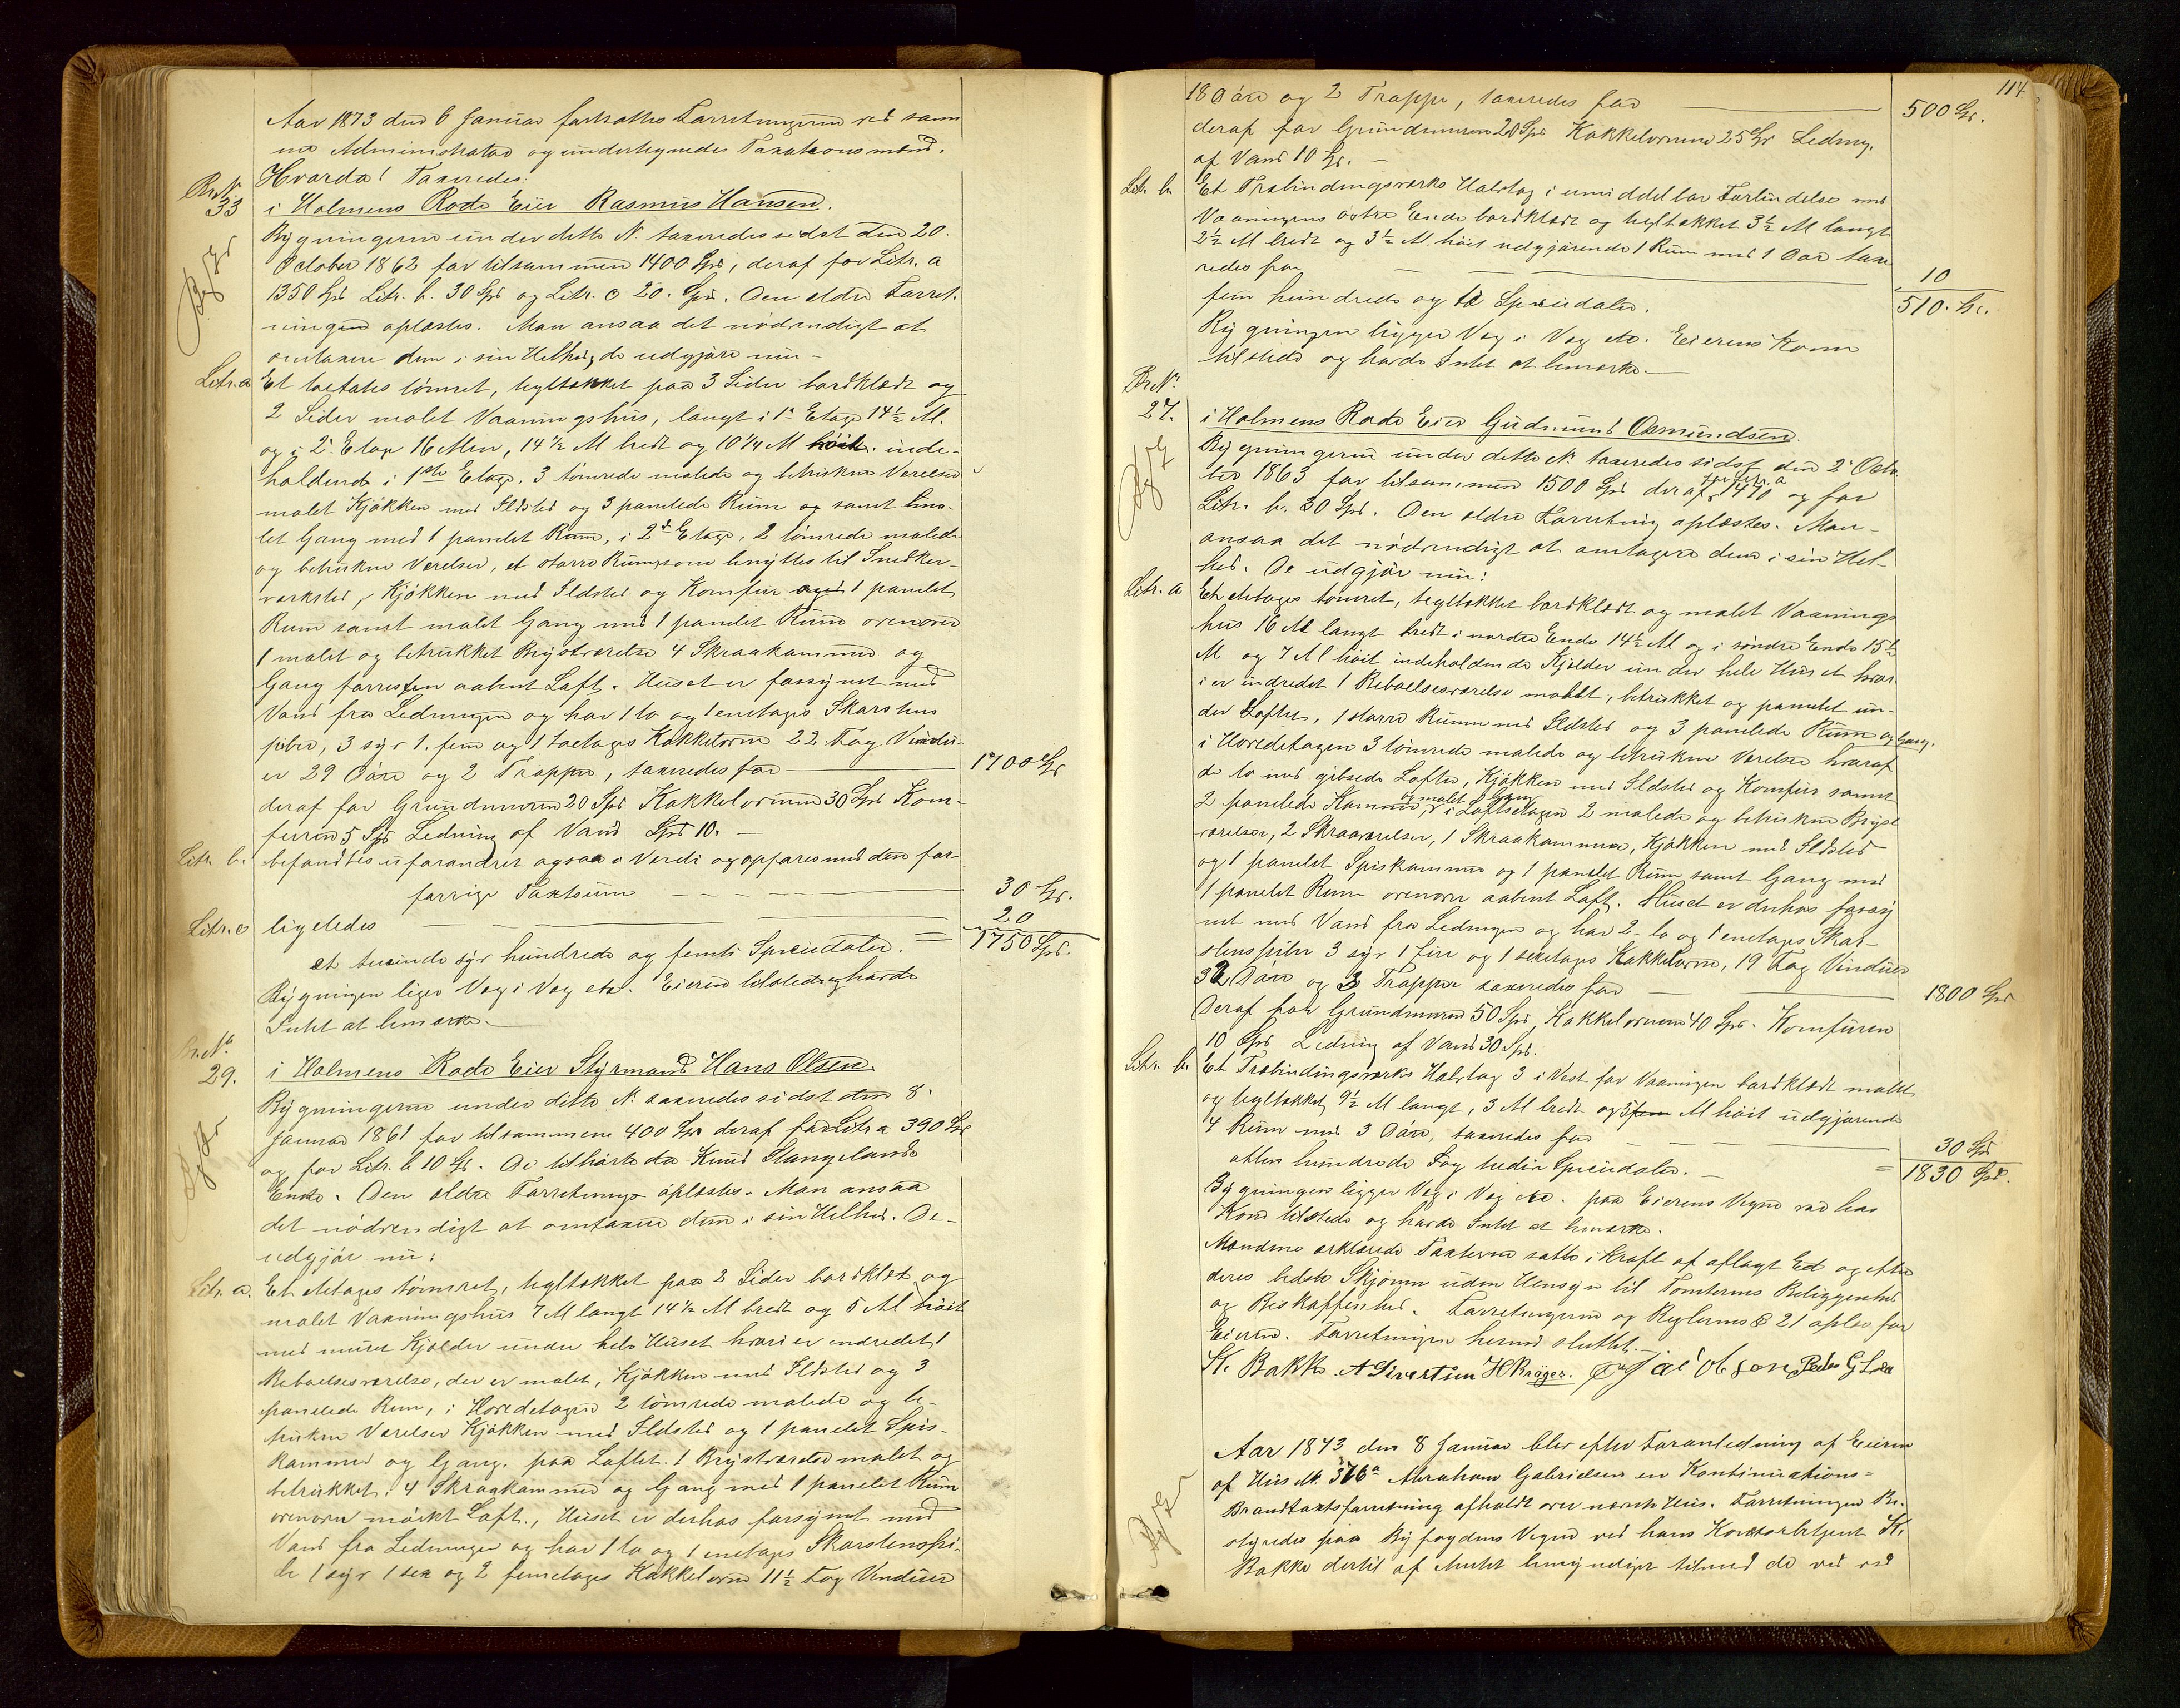 Aar 1873 den 6 Januar fortsattes Forretningen ved samme
Administrator og undertegnede Taxationsmænd.
Hvorda! Taxeredes:
Br No
33 i Holmens Rode Eier Rasmus Hansen.
Bygningerne under dette No taxeredes sidst den 20.
October 1862 for tilsammen 1400 Spd, deraf for Litr. a
1350 Spd Litr. b. 30 Spd og Litr. c 20. Spd. Den ældre Forret-
ningen oplæstes. Man ansaa det nödvendigt at
omtaxere dem i sin Helhed, de udgjöre nu -
Litr. a Et toetages tömret, tegltækket paa 3 Sider bordklædt og
2 Sider malet Vaaningshus, langt i 1e Etage 14½ Al.
og i 2e Etage 16 Alen, 14½ Al bredt og 10¼ Al höit inde-
holdende i 1ste Etage. 3 tömrede malede og betrukne Værelser
malet Kjökken med Ildsted og 3 panelede Rum og samt ma-
let Gang med 1 panelet Rum, i 2d Etage, 2 tömrede malede
og betrukne Værelser, et større Rum som benyttes til Snedker-
værksted, Kjökken med Ildsted og Komfur og 1 panelet
Rum samt malet Gang med 1 panelet Rum ovenover
1 malet og betrukket Bryst værelse 4 Skraakammere og
Gang forresten aabent Loft. Huset er forsynet med
Vand fra Ledningen og har 1 to og 1 enetages Skorstens
piber, 3 syv 1. fem og 1 toetages Kakkelovne 22 Fag Vindu-
er 29 Döre og 2 Trapper, taxeredes for 1700 Spd
deraf for Grundmuren 20 Spd Kakkelovnene 30 Spd Kom-
furen 5 Spd Ledning af Vand Spd 10. -
Litr. b. befandtes uforandret ogsaa i Værdi og opføres med den for-
forrige Taxtsum 30 Sp.
Litr. c ligeledes 20
et tusinde syv hundrede og femti Speciedaler. = 1750 Spd.
Bygningen ligger Væg i Væg etc. Eieren tilstede og havde
Intet at bemærke.
Br. No
29. i Holmens Rode Eier Styrmand Hans Olsen.
Bygningerne under dette No taxeredes sidst den 8.
Januar 1861 for tilsammene 400 Spd deraf for Litr a 390 Spd
og for Litr. b 10 Sp. De tilhörte da Knud Stangelands
Enke. Den ældre Forretning oplæstes. Man ansaa
det nödvendigt at omtaxere dem i sin Helhed. De-
udgjör nu:
Litr. a. Et etetages tömret, tegltækket paa 2 Sider bordklædt og
malet Vaaningshus 7 Al langt 14½ Al bredt og 5 Al höit
med muret Kjælder under hele Huset hvori er indredet 1
Beboelsesværelse, der er malet, Kjökken med Ildsted og 3
panelede Rum, i Hovedetagen 2 tömrede malede og be-
trukne Værelser Kjökken med Ildsted og 1 panelet Spis-
kammer og Gang. paa Loftet. 1 Brystværelse malet og
betrukket, 4 Skraakammere og Gang med 1 panelet Rum
ovenover mörkt Loft., Huset er derhos forsynet med
Vand fra Ledningen og har 1 to og 1 enetages Skorstenspi-
be 1 syv 1 sex og 2 femetages Kakkelovne 11½ Fag Vinduer
114.
18 Döre og 2 Trappe, taxeredes for 500 Sp.
deraf for Grundmuren 20 Spd Kakkelovnene 25 Spd Ledning.
af Vand 10 Sp. -
Litr. b. Et Træbindingsværks Halvtag i umiddelbar Forbindelse med
Vaaningens östre Ende bordklædt og tegltækket 3½ Al langt
2½ Al bredt og 3½ Al. höit udgjörende 1 Rum med 1 Dør taxe
redes for 10
fem hundrede og ti Speciedaler. 510. Sp.
Bygningen ligger Væg i Væg etc. Eierens Kone
tilstede og havde Intet at bemærke.
Br No
27. i Holmens Rode Eier Gudmund Osmundsen.
Bygningerne under dette No taxeredes sidst den 2 Octo
ber 1863 for tilsammen 1500 Spd deraf for Litr. a 1470 og for
Litr. b. 30 Spd. Den ældre Forretning oplæstes. Man-
ansaa det nödvendigt at omtaxere dem i sin Hel-
hed. De udgjör nu:
Litr. a Et etetages tömret, tegltækket bordklædt og malet Vaanings
hus 16 Al langt bredt i nordre Ende 14½ Al og i söndre Ende 15½
Al og 7 Al höit indeholdende Kjelder under hele Huset hvor
i er indredet 1 Beboelsesværelse malet, betrukket og panelet un-
der Loftet, 1 større Rum med Ildsted og 3 panelede Rum og Gang.
i Hovedetagen 3 tömrede malede og betrukne Værelser hvoraf
de to med gibsede Lofte, Kjökken med Ildsted og Komfur samt
2 panelede Kammer, og malet Gang i Loftsetagen 2 malede og betrukne Bryst
værelser, 2 Skraaværelser, 1 Skraakammer, Kjökken med Ildsted
og 1 panelet Spiskammer og 1 panelet Rum samt Gang med
1 panelet Rum ovenover aabent Loft. Huset er derhos forsy
net med Vand fra Ledningen og har 2- to og 1 enetages Skor-
stenspiber 3 syv 1 fire og 1 sexetages Kakkelovne, 19 Fag Vinduer
32 Döre og 3 Trapper taxeredes for 1800 Spd
Deraf for Grundmuren 50 Spd, Kakkelovnene 40 Spd. Komfuren
10 Spd Ledning af Vand 30 Spd.
Litr. b. Et Træbindingsværks Halvtag 3 i Vest for Vaaningen bordklædt malet
og tegltækket 9½ Al langt, 3 Al bredt og 3 Al höit udgjörende
4 Rum med 3 Döre, taxeredes for 30 Spd
atten hundrede og tredive Speciedaler. = 1830 Spd.
Bygningen ligger Væg i Væg etc. paa Eierens Vegne var hans
Kone tilstede og havde Intet at bemærke.
Mændene erklærede Taxterne satte i Kraft af aflagt Ed og efter
deres bedste Skjönn uden Hensyn til Tomternes Beliggenhed
og Beskaffenhed. Forretningerne og Reglernes § 21 oplæst for
Eierne. Forretningen hermed sluttet.
K. Bakke. A Sivertsen H Kröger. Jacobsen Peder G Lea
Aar 1873 den 8 Januar blev efter Foranledning af Eieren
af Hus No. 376a Abraham Gabrielsen en Kontinuations=
Brandtaxtsforretning afholdt over nævnte Hus. Forretningen Be-
styredes paa Byfogdens Vegne ved hans Kontorbetjent K.
Bakke dertil af Amtet bemyndiget tilmed de ved